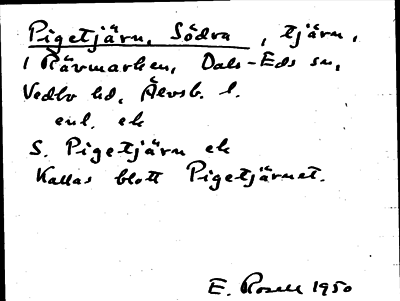 Pigetjärn, Södra, tjärn,
i Rävmarken, Dals-Eds sn,
Vedbo hd, Älvsb. l.
enl. ek
S. Pigetjärn ek
Kallas blott Pigetjärnet.
E. Rosell 1950